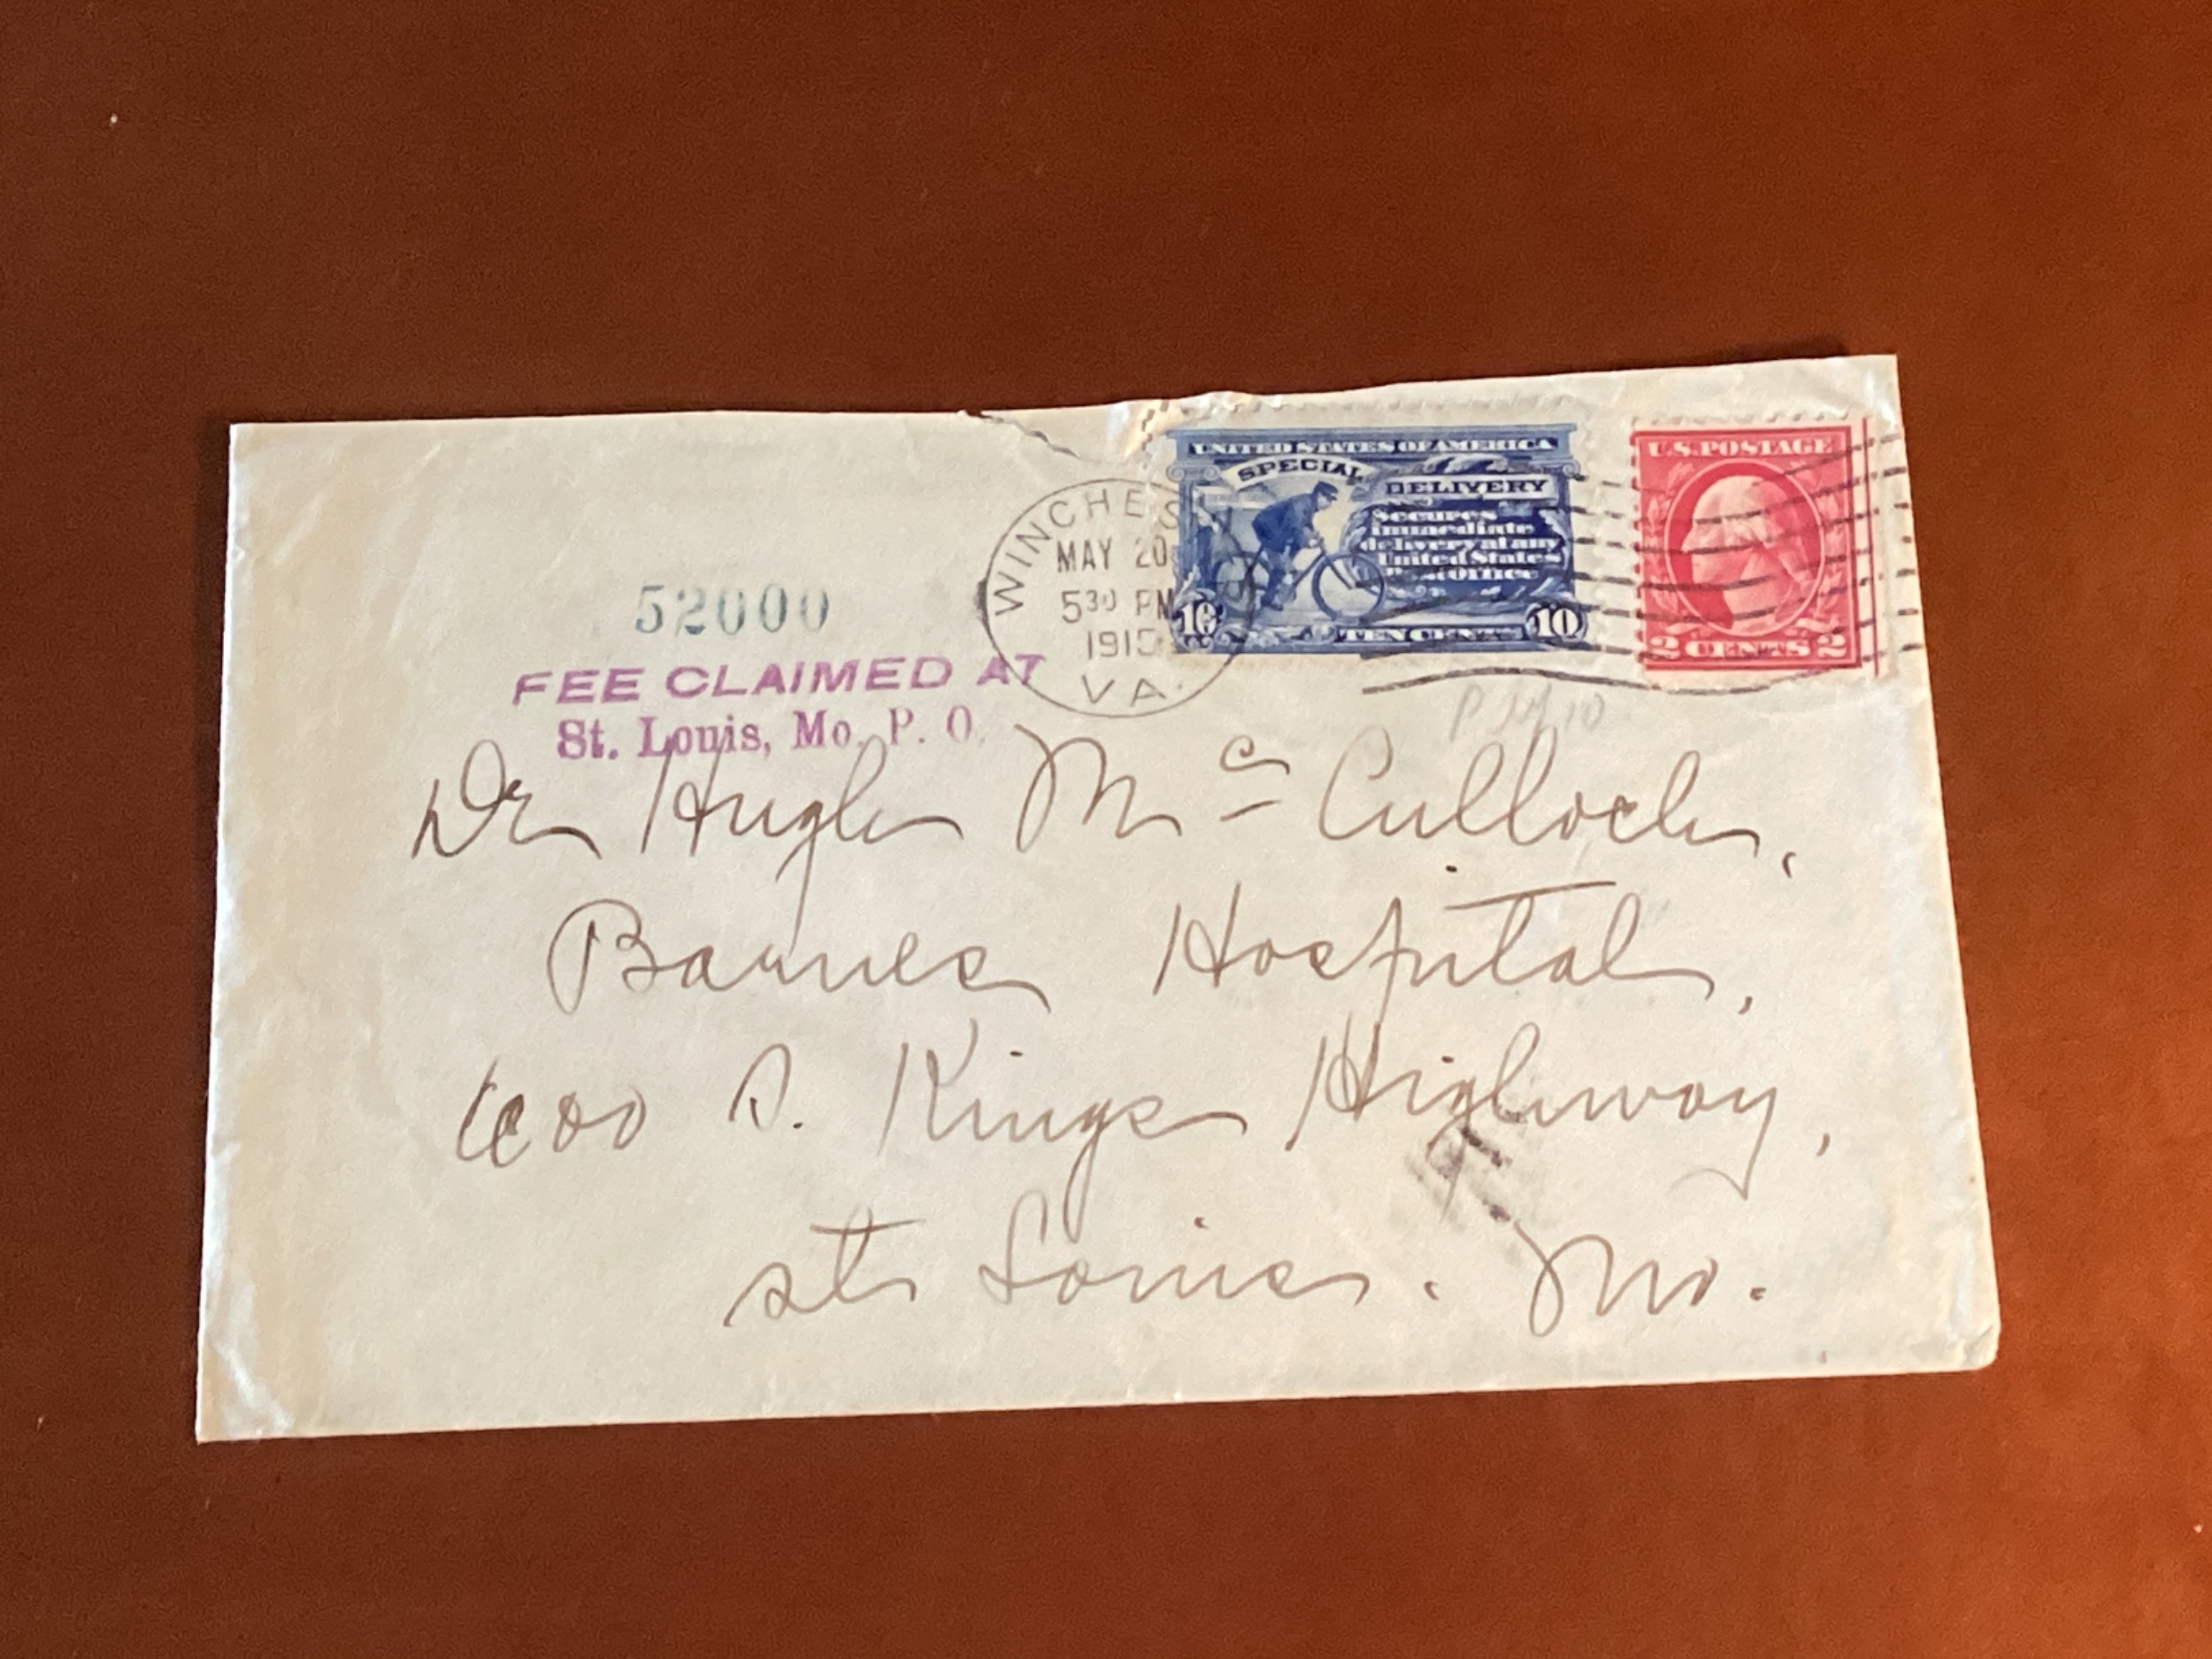 UNITED STATES OF AMERICA
SPECIAL DELIVERY
Secures
immediate
delivery at any
United States
Post Office
10 TEN CENTS 10
U.S. POSTAGE
2 CENTS 2
WINCHES
MAY 20
5 30 PM
1915
VA.
52000
FEE CLAIMED AT
St. Louis, Mo. P. O.
Dr Hugh Mc Culloch,
Barnes Hospital,
600 S. Kings Highway,
St Louis. Mo.